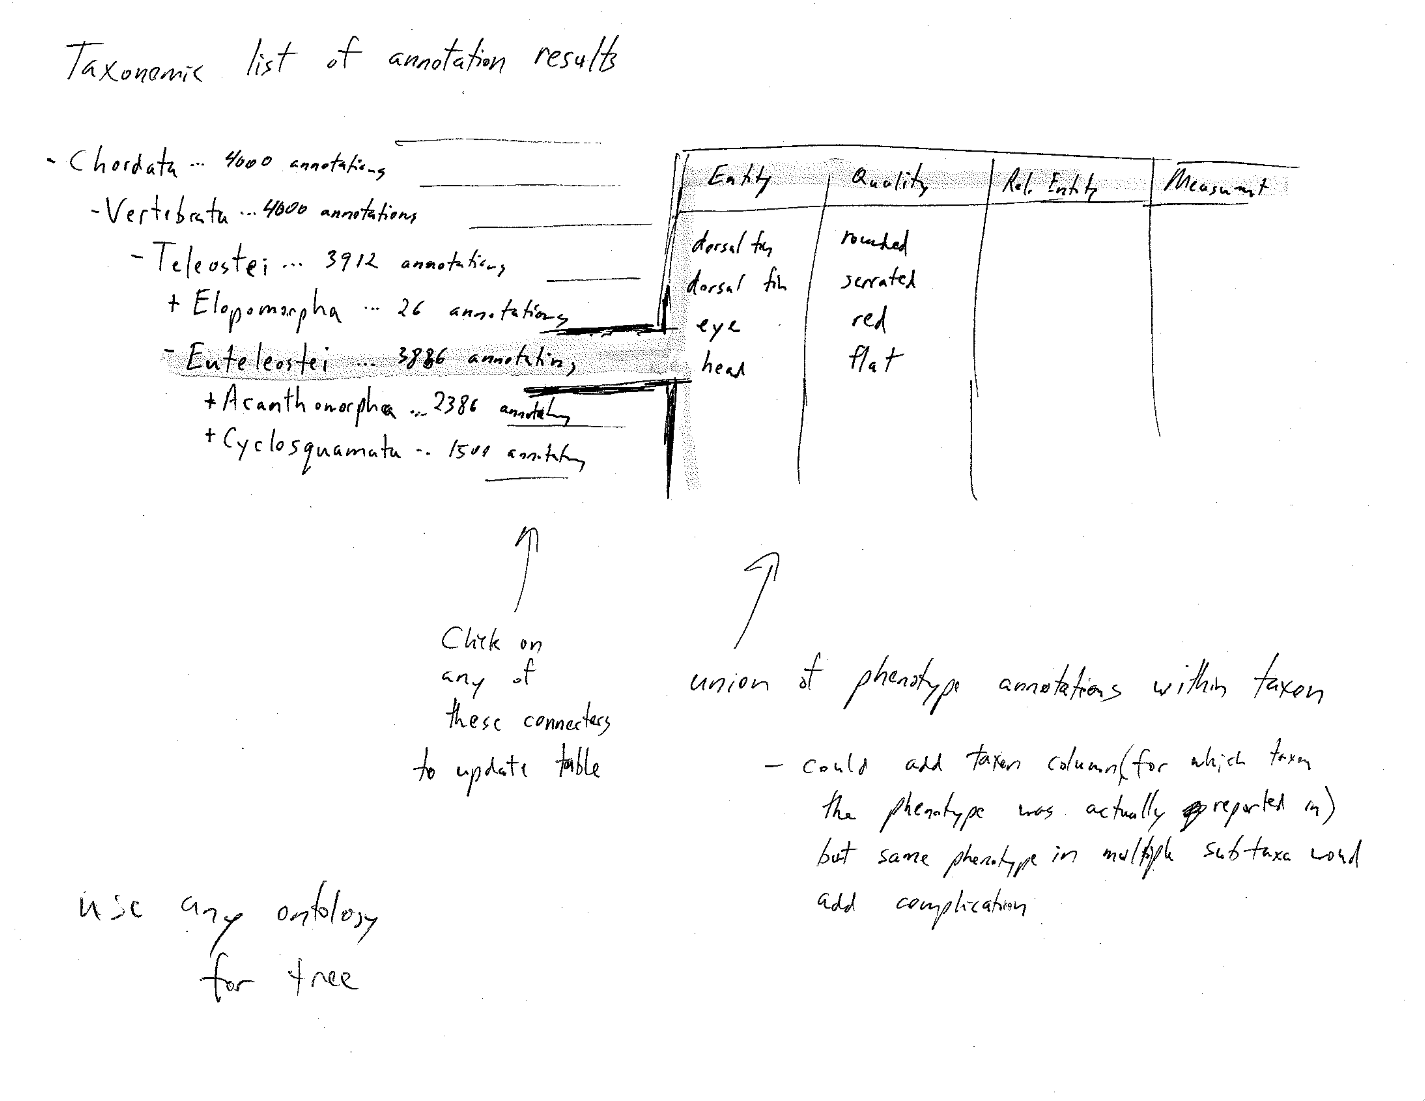 Taxonomic list of annotation results
- Chordata ... 4000 annotations
- Vertebrata ... 4000 annotations
- Teleostei ... 3912 annotations
+ Elopomorpha ... 26 annotations
- Euteleostei ... 3886 annotations
+ Acanthomorpha ... 2386 annotations
+ Cyclosquamata ... 1500 annotations
Entity Quality Rel. Entity Measurmt
dorsal fin rounded
dorsal fin serrated
eye red
head flat
Click on
any of
these connecters
to update table
union of phenotype annotations within taxon
- could add taxon column (for which taxon
the phenotype was actually reported in)
but same phenotype in multiple subtaxa would
add complication
use any ontology
for tree